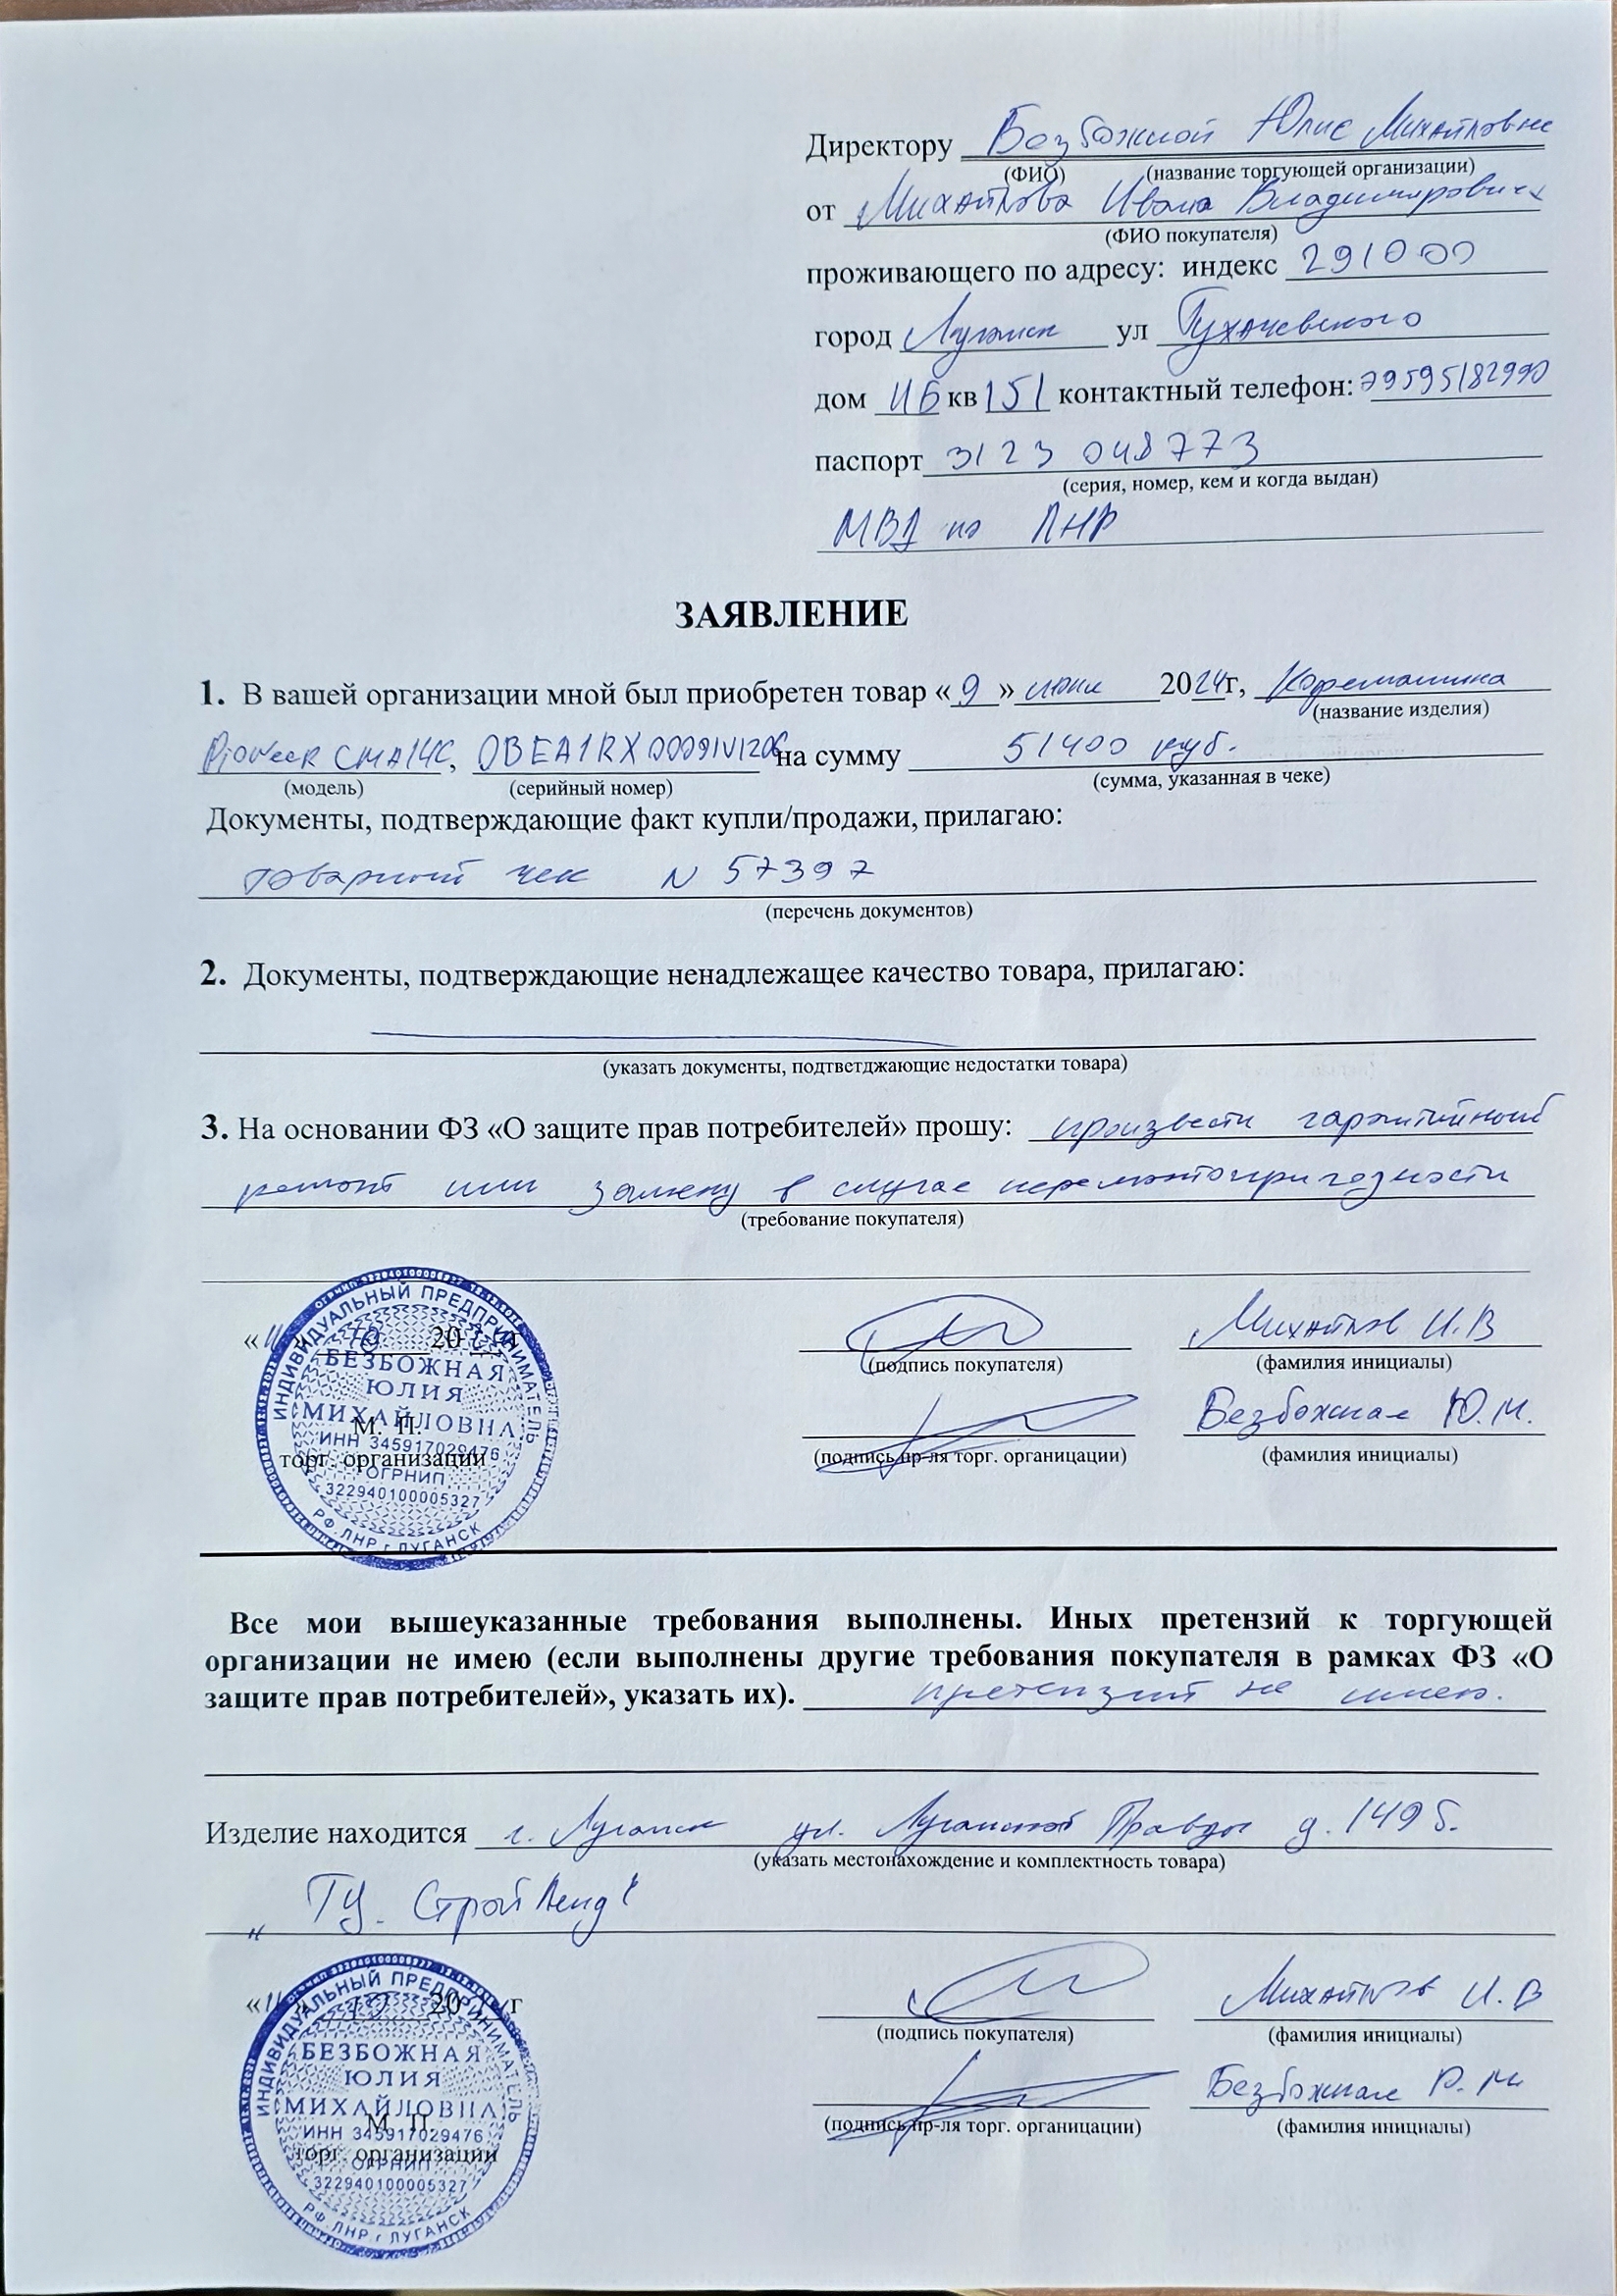 Директору Безбожной Юлие Михайловне
(ФИО) (название торгующей организации)
от Михайлова Ивана Владимировича
(ФИО покупателя)
проживающего по адресу: индекс 291000
город Луганск ул Тухачевского
дом кв 151 контактный телефон: 79595182990
паспорт 3123 048773
(серия, номер, кем и когда выдан)
МВД по ЛНР
ЗАЯВЛЕНИЕ
1. В вашей организации мной был приобретен товар «9» июня 2024г, Кофемашина
(название изделия)
Pioneer CMA14C, на сумму 51400 руб.
(модель) (серийный номер) (сумма, указанная в чеке)
Документы, подтверждающие факт купли/продажи, прилагаю:
товарный чек N 57397
(перечень документов)
2. Документы, подтверждающие ненадлежащее качество товара, прилагаю:
(указать документы, подтветджающие недостатки товара)
3. На основании ФЗ «О защите прав потребителей» прошу: произвести гарантийный
ремонт или замену в случае неремонтопригодности
(требование покупателя)
«11» 10 20 г
Михайлов И.В
(подпись покупателя) (фамилия инициалы)
Безбожная Ю.М.
(подпись пр-ля торг. органицации) (фамилия инициалы)
ИНДИВИДУАЛЬНЫЙ ПРЕДПРИНИМАТЕЛЬ
БЕЗБОЖНАЯ
ЮЛИЯ
МИХАЙЛОВНА
М. П.
ИНН 345917029476
торг. организации
ОГРНИП
322940100005327
РФ ЛНР г ЛУГАНСК
Все мои вышеуказанные требования выполнены. Иных претензий к торгующей
организации не имею (если выполнены другие требования покупателя в рамках ФЗ «О
защите прав потребителей», указать их). претензий не имею.
Изделие находится г. Луганск ул. Луганской Правды д. 149 Б.
(указать местонахождение и комплектность товара)
„ТЦ. СтройЛенд“
«11» 10 20 г
Михайлов И.В
(подпись покупателя) (фамилия инициалы)
Безбожная Ю.М
(подпись пр-ля торг. органицации) (фамилия инициалы)
ИНДИВИДУАЛЬНЫЙ ПРЕДПРИНИМАТЕЛЬ
БЕЗБОЖНАЯ
ЮЛИЯ
МИХАЙЛОВНА
М. П.
ИНН 345917029476
торг. организации
ОГРНИП
322940100005327
РФ ЛНР г ЛУГАНСК